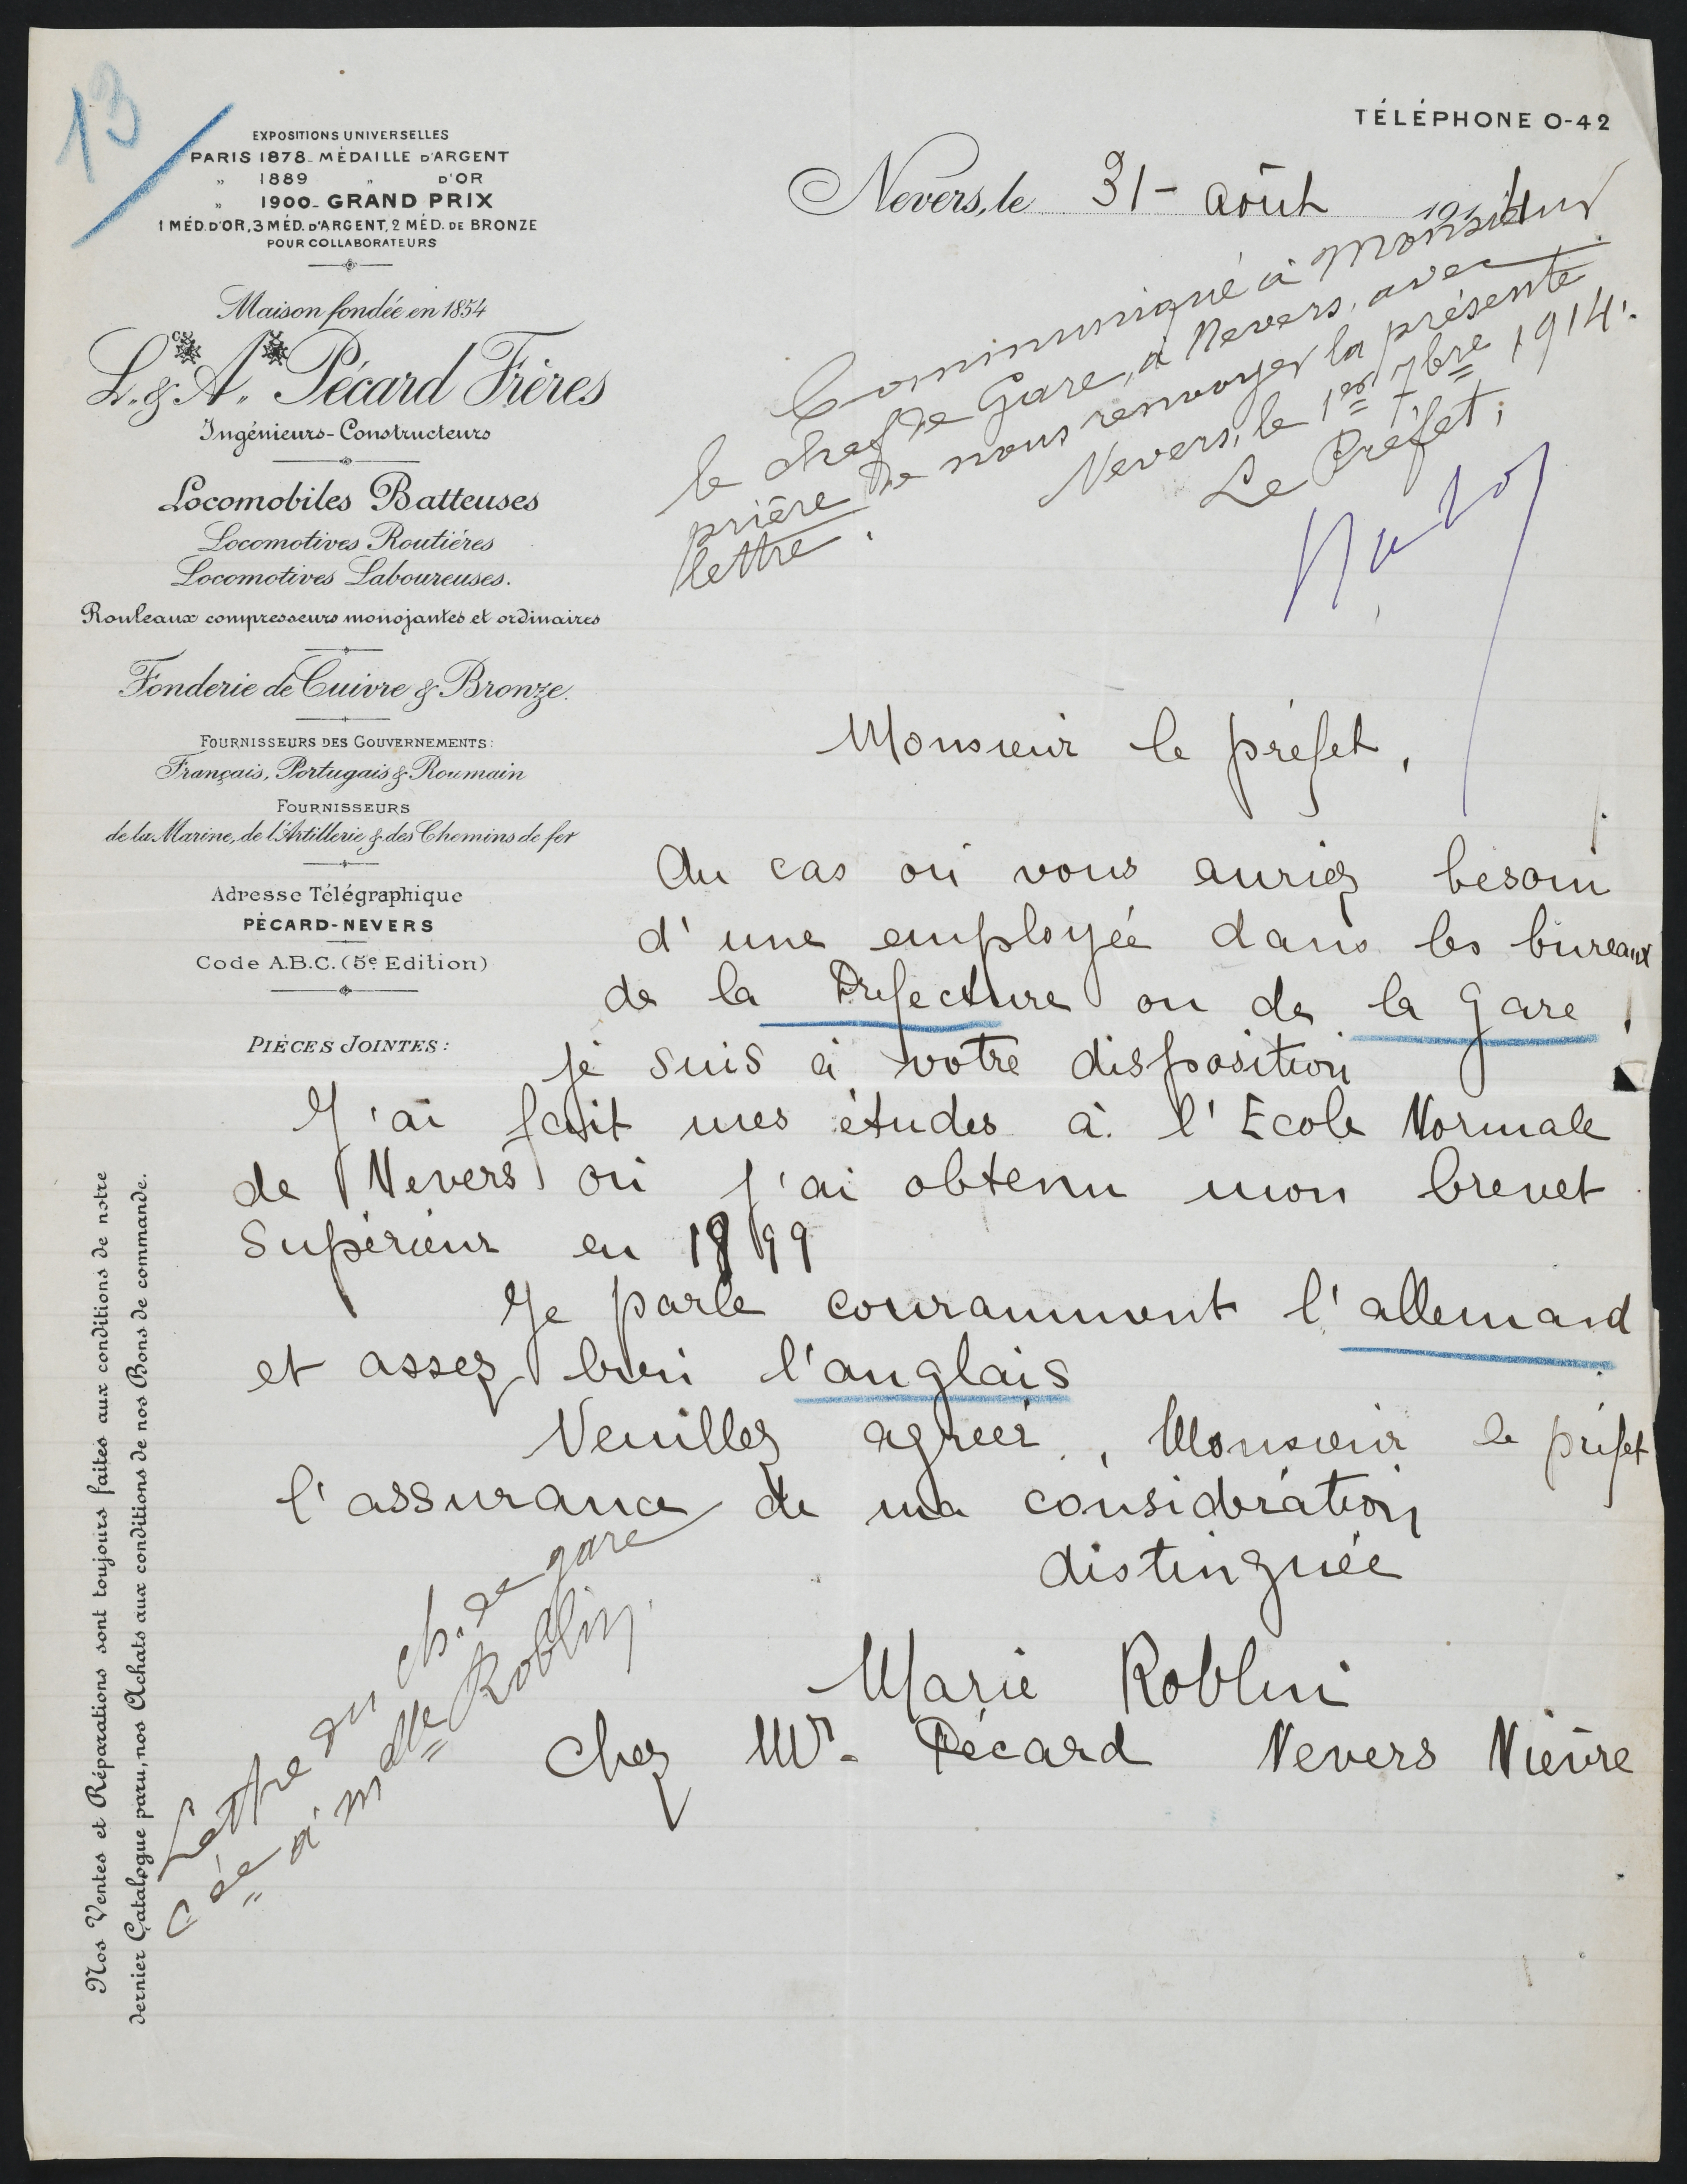 13
TÉLÉPHONE 0-42
EXPOSITIONS UNIVERSELLES
PARIS 1878_ MÉDAILLE D'ARGENT
„ 1889 „ D'OR
„ 1900_ GRAND PRIX
1 MÉD. D'OR, 3 MÉD. D'ARGENT, 2 MÉD. DE BRONZE
POUR COLLABORATEURS
Maison fondée en 1854
L. & A. Pécard Frères
Ingénieurs-Constructeurs
Locomobiles Batteuses
Locomotives Routières
Locomotives Laboureuses.
Rouleaux compresseurs monojantes et ordinaires
Fonderie de Cuivre & Bronze.
FOURNISSEURS DES GOUVERNEMENTS:
Français, Portugais & Roumain
FOURNISSEURS
de la Marine, de l'Artillerie & des Chemins de fer
Adresse Télégraphique
PÉCARD-NEVERS
Code A.B.C. (5e Edition)
PIÈCES JOINTES:
Nos Ventes et Réparations sont toujours faites aux conditions de notre
dernier Catalogue paru, nos Achats aux conditions de nos Bons de commande.
Nevers, le 31 - août 191
Communiqué à Monsieur
le chef de Gare, à Nevers, avec
prière de nous renvoyer la présente
lettre.
Nevers, le 1er 7bre 1914.
Le Préfet,
Monsieur le préfet,
Au cas où vous auriez besoin
d'une employée dans les bureaux
de la Préfecture ou de la gare,
je suis à votre disposition
J'ai fait mes études à l'Ecole Normale
de Nevers où j'ai obtenu mon brevet
Supérieur en 1899
Je parle couramment l'allemand
et assez bien l'anglais
Veuillez agréer, Monsieur le préfet
l'assurance de ma considération
distinguée
Marie Roblin
Chez Mr. Pécard Nevers Nièvre
Lettre du ch. de gare
cée à Mdlle Roblin.